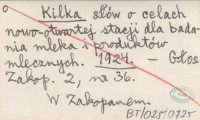 Kilka słów o celach
nowo-otwartej stacji dla bada-
nia mleka i produktów
mlecznych. 1924. – Głos
Zakop. 2, nr 36.
W Zakopanem.
BT/025/0725